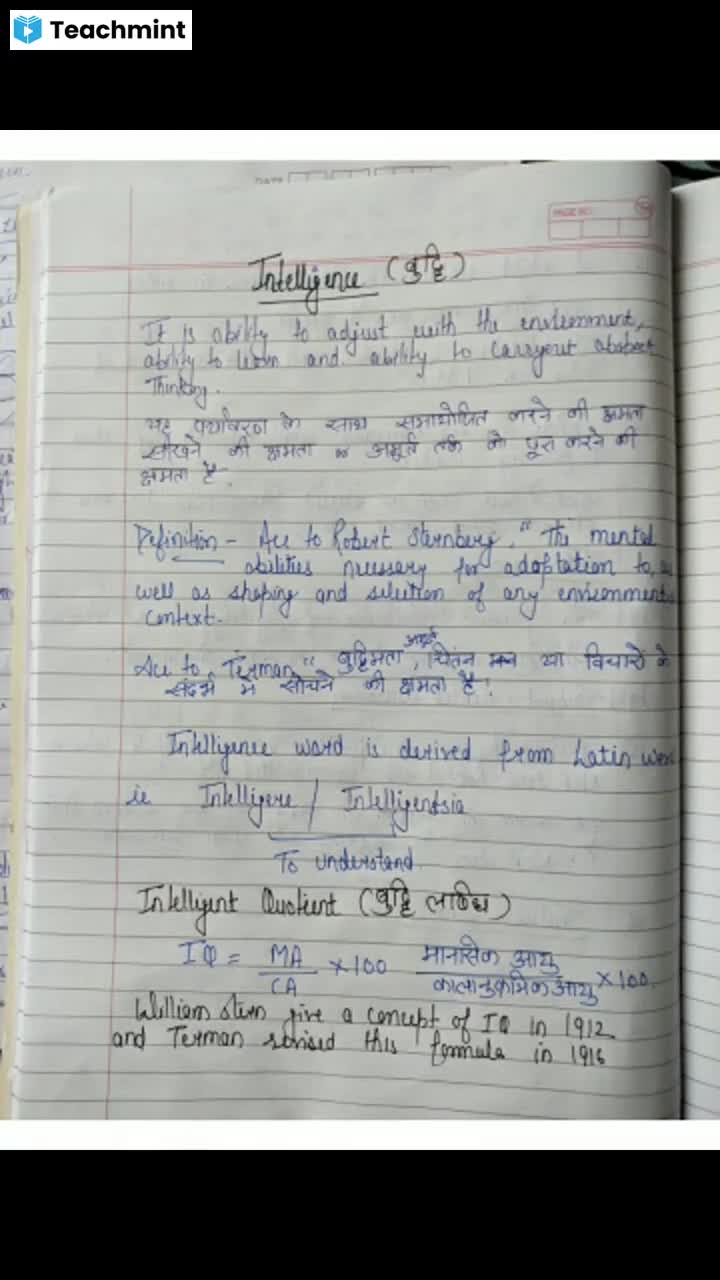 Teachmint
DATE
PAGE NO.
Intelligence (बुद्धि)
It is ability to adjust with the environment,
ability to learn and ability to carryout abstract
Thinking.
यह पर्यावरण के साथ समायोजित करने की क्षमता
सीखने की क्षमता अमूर्त तर्क को पूरा करने की
क्षमता है
Definition - Acc to Robert Sternberg, " The mental
abilities necessary for adaptation to, as
well as shaping and selection of any environmental
context.
Acc to Terman " बुद्धिमता, अमूर्त चिंतन या विचारों के
संदर्भ में सोचने की क्षमता है !
Intelligence word is derived from Latin word
ie Intelligere / Intelligentsia
To understand
Intelligent Quotient (बुद्धि लब्धि)
IQ = MA/CA ×100 मानसिक आयु/कालानुक्रमिक आयु ×100.
William Stern give a concept of IQ in 1912
and Terman revised this formula in 1916